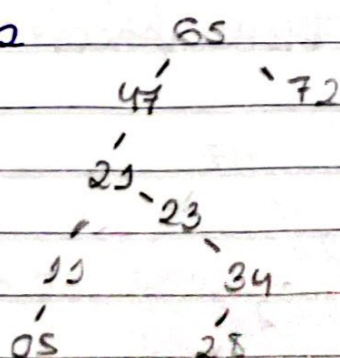 65
47 72
21
23
11 34
05 28